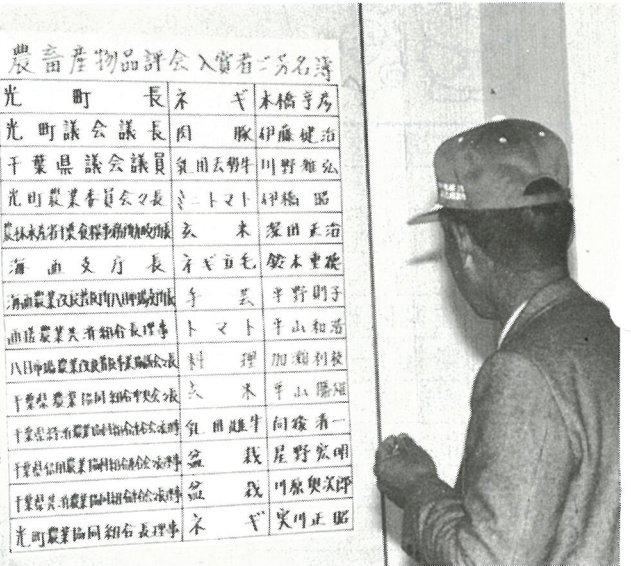 農畜産物品評会入賞者ご芳名簿
光町長 ネギ 木橋享彦
光町議会議長 肉豚 伊藤健治
千葉県議会議員 乳用去勢牛 川野雅弘
光町農業委員会々長 ミニトマト 伊橋昭
農林水産省千葉食糧事務所 玄米 正治
海匝支庁長 ネギ立毛 鈴木重徳
海匝農業改良普及所八日市場支所長 手芸 平野則子
匝瑳農業共済組合長理事 トマト 平山和浩
八日市場農業改良普及事業協議会々長 料理 加瀬利枝
千葉県農業協同組合中央会々長 玄米 平山勝雄
千葉県経済農業協同組合連合会々長理事 乳用雄牛 向後清一
千葉県信用農業協同組合連合会々長理事 盆栽 星野宏明
千葉県共済農業協同組合連合会々長理事 盆栽 川原與次郎
光町農業協同組合長理事 ネギ 実川正昭